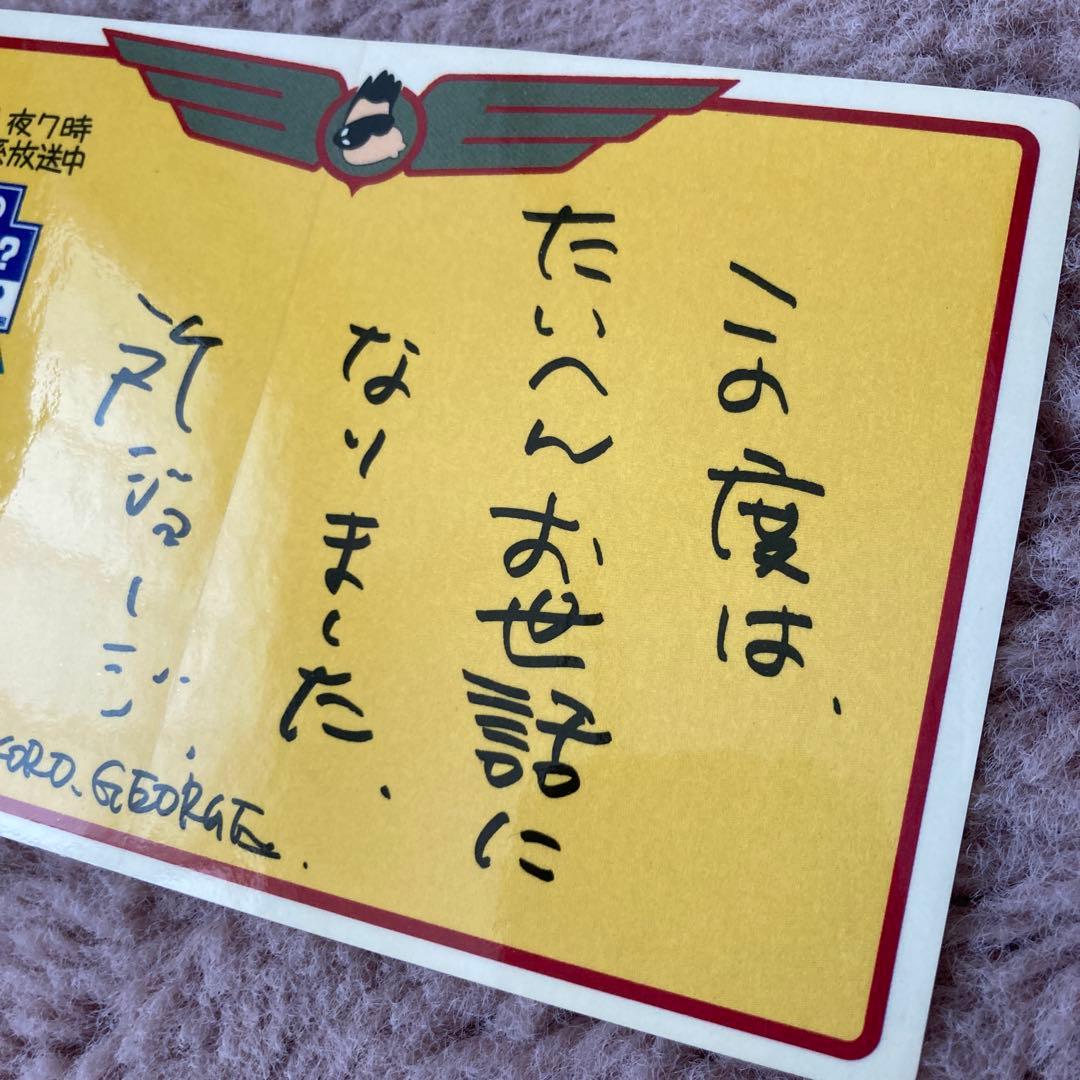 この度は、
たいへんお世話に
なりました、
所ジョージ.
夜7時
放送中
?
KORO, GEORGE.